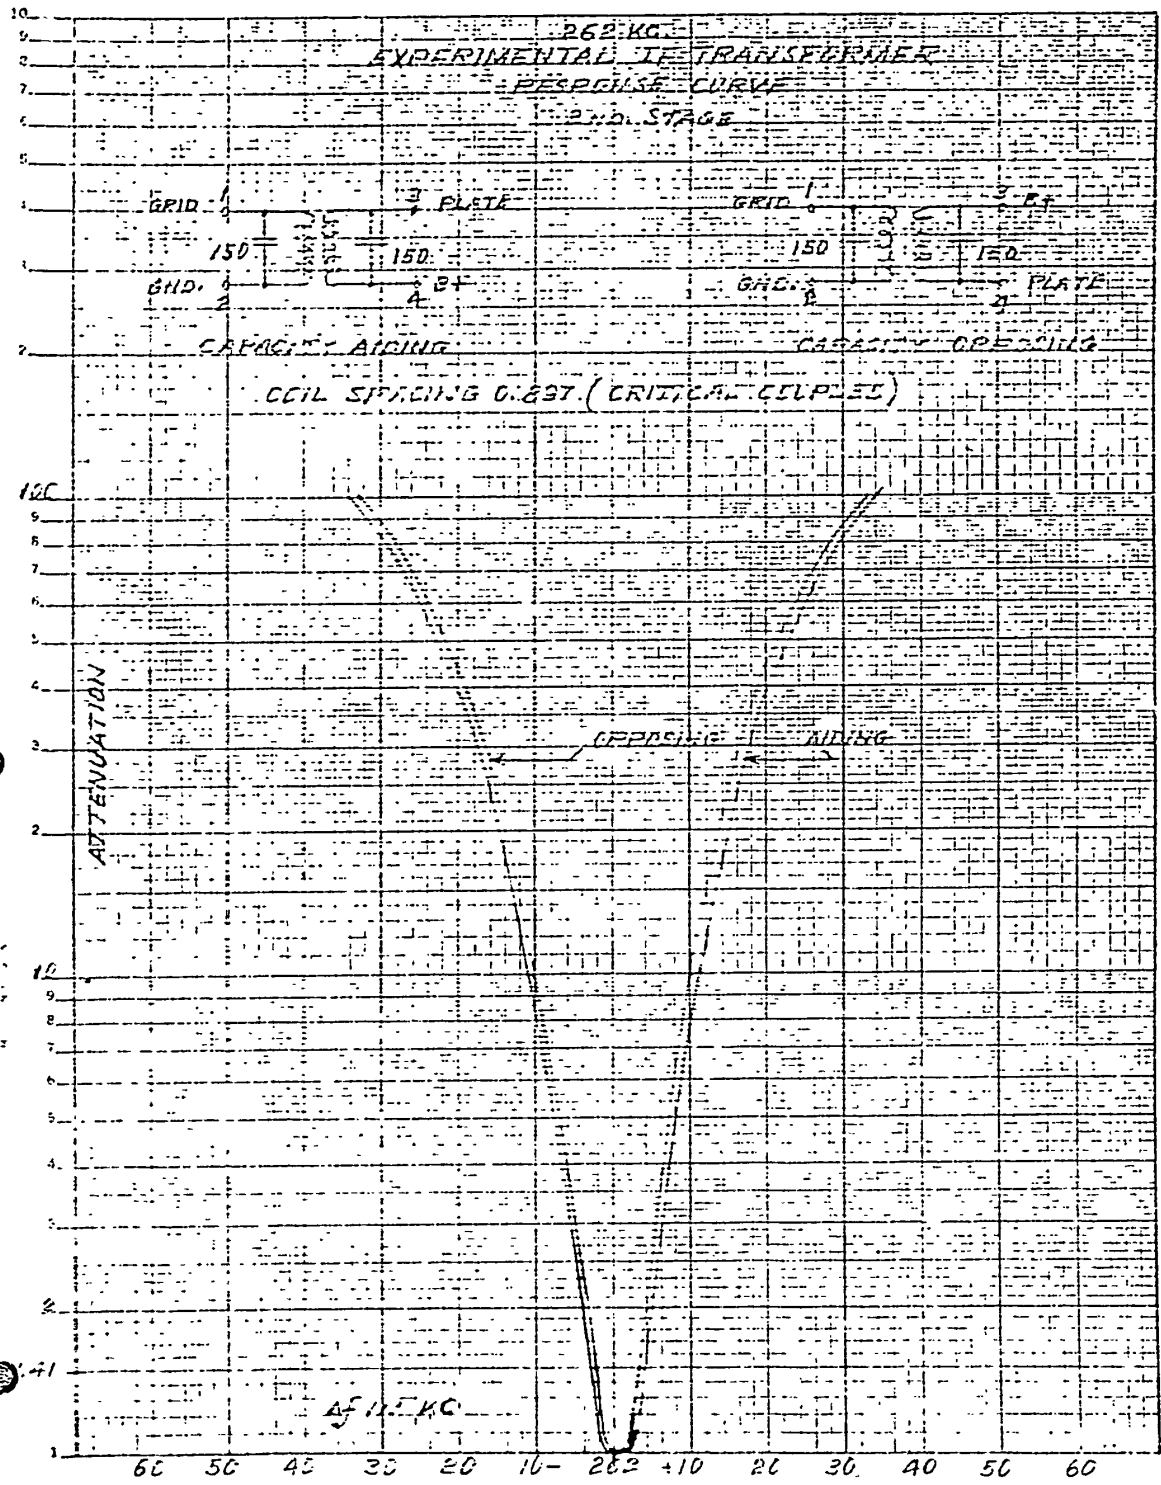 262 KC.
EXPERIMENTAL IF TRANSFORMER
RESPONSE CURVE
2ND. STAGE
10
9
8
7
6
5
4
3
2
GRID 1
3 PLATE
150
150
GND. 2
4 B+
CAPACITY AIDING
GRID 1
3 B+
150
150
GND. 2
4 PLATE
CAPACITY OPPOSING
COIL SPACING 0.897 (CRITICAL COUPLED)
100
9
8
7
6
5
4
3
2
ATTENUATION
OPPOSING
AIDING
10
9
8
7
6
5
4
3
2
1.41
1
Δf IN KC
60 50 40 30 20 10- 262 +10 20 30 40 50 60